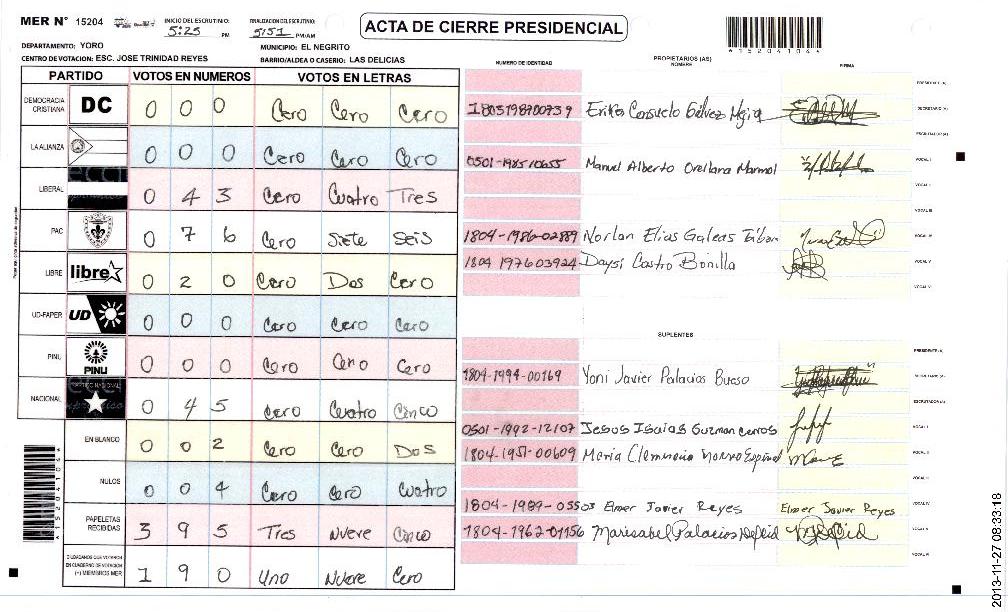 MER N° 15204
INICIO DEL ESCRUTINIO: 5:25 PM
FINALIZACION DEL ESCRUTINIO: 5:51 PM/AM
ACTA DE CIERRE PRESIDENCIAL
*15204104*
DEPARTAMENTO: YORO
MUNICIPIO: EL NEGRITO
CENTRO DE VOTACION: ESC. JOSE TRINIDAD REYES
BARRIO/ALDEA O CASERIO: LAS DELICIAS
PARTIDO VOTOS EN NUMEROS VOTOS EN LETRAS
DEMOCRACIA CRISTIANA DC 0 0 0 Cero Cero Cero
LA ALIANZA 0 0 0 Cero Cero Cero
LIBERAL 0 4 3 Cero Cuatro Tres
PAC 0 7 6 Cero Siete Seis
LIBRE libre 0 2 0 Cero Dos Cero
UD-FAPER UD 0 0 0 Cero Cero Cero
PINU PINU 0 0 0 Cero Cero Cero
NACIONAL 0 4 5 Cero Cuatro Cinco
EN BLANCO 0 0 2 Cero Cero Dos
NULOS 0 0 4 Cero Cero Cuatro
PAPELETAS RECIBIDAS 3 9 5 Tres Nueve Cinco
CIUDADANOS QUE VOTARON EN CUADERNO DE VOTACION (+) MIEMBROS MER 1 9 0 Uno Nueve Cero
NUMERO DE IDENTIDAD PROPIETARIOS (AS) NOMBRE FIRMA
PRESIDENTE (A)
1805198700739 Erika Consuelo Gálvez SECRETARIO (A)
ESCRUTADOR (A)
0501-1985/0655 Manuel Alberto Orellana Marmol VOCAL I
VOCAL II
VOCAL III
1804-1986-02889 Norlan Elias Galeas VOCAL IV
1804 197603924 Daysi Castro Bonilla VOCAL V
VOCAL VI
SUPLENTES
PRESIDENTE (A)
1804-1994-00169 Yoni Javier Palacios Bueso SECRETARIO (A)
ESCRUTADOR (A)
0501-1992-12107 Jesus Isaias Guzman Cerros VOCAL I
1804-1951-00609 Maria VOCAL II
VOCAL III
1804-1989-05503 Elmer Javier Reyes Elmer Javier Reyes VOCAL IV
1804-1962-01156 Marisabel Palacios VOCAL V
VOCAL VI
*15204104*
2013-11-27 08:33:18